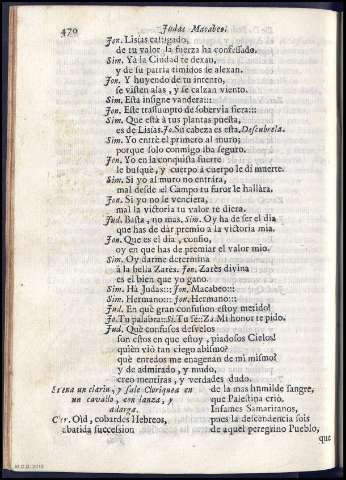 470 Judas Macabeo.
Jon. Lisias castigado,
de tu valor la fuerza ha confessado.
Sim. Yà la Ciudad te dexan,
y de su patria timidos se alexan.
Jon. Y huyendo de tu intento,
se visten alas, y se calzan viento.
Sim. Esta insigne vandera:::
Jon. Este trassumpto de sobervia fiera:::
Sim. Que està à tus plantas puesta,
es de Lisias. Jo. Su cabeza es esta. Descubrela.
Sim. Yo entrè el primero al muro;
porque solo conmigo iba seguro.
Jon. Yo en la conquista fuerte
le busquè, y cuerpo à cuerpo le di muerte.
Sim. Si yo al muro no entràra,
mal desde el Campo tu furor le hallàra.
Jon. Si yo no se venciera,
mal la victoria tu valor te diera.
Jud. Basta, no mas. Sim. Oy ha de ser el dia
que has de dar premio à la victoria mia.
Jon. Que es el dia, confio,
oy en que has de premiar el valor mio.
Sim. Oy darme determina
à la bella Zarès. Jon. Zarès divina
es el bien que yo gano.
Sim. Hà Judas::: Jon. Macabeo:::
Sim. Hermano::: Jon. Hermano:::
Jud. En què gran confusion estoy metido!
Jo. Tu palabra::: Si. Tu fè::: Za. Mi honor te pido.
Jud. Què confusos desvelos
son estos en que estoy, piadosos Cielos!
quièn viò tan ciego abismo?
què enredos me enagenan de mi mismo?
y de admirado, y mudo,
creo mentiras, y verdades dudo.
Suena un clarin, y sale Chriquea en
un cavallo, con lanza, y
adarga.
Oid, cobardes Hebreos,
abatida succession
de la mas humilde sangre,
que Palestina criò.
Infames Samaritanos,
pues la descendencia sois
de aquel peregrino Pueblo,
que